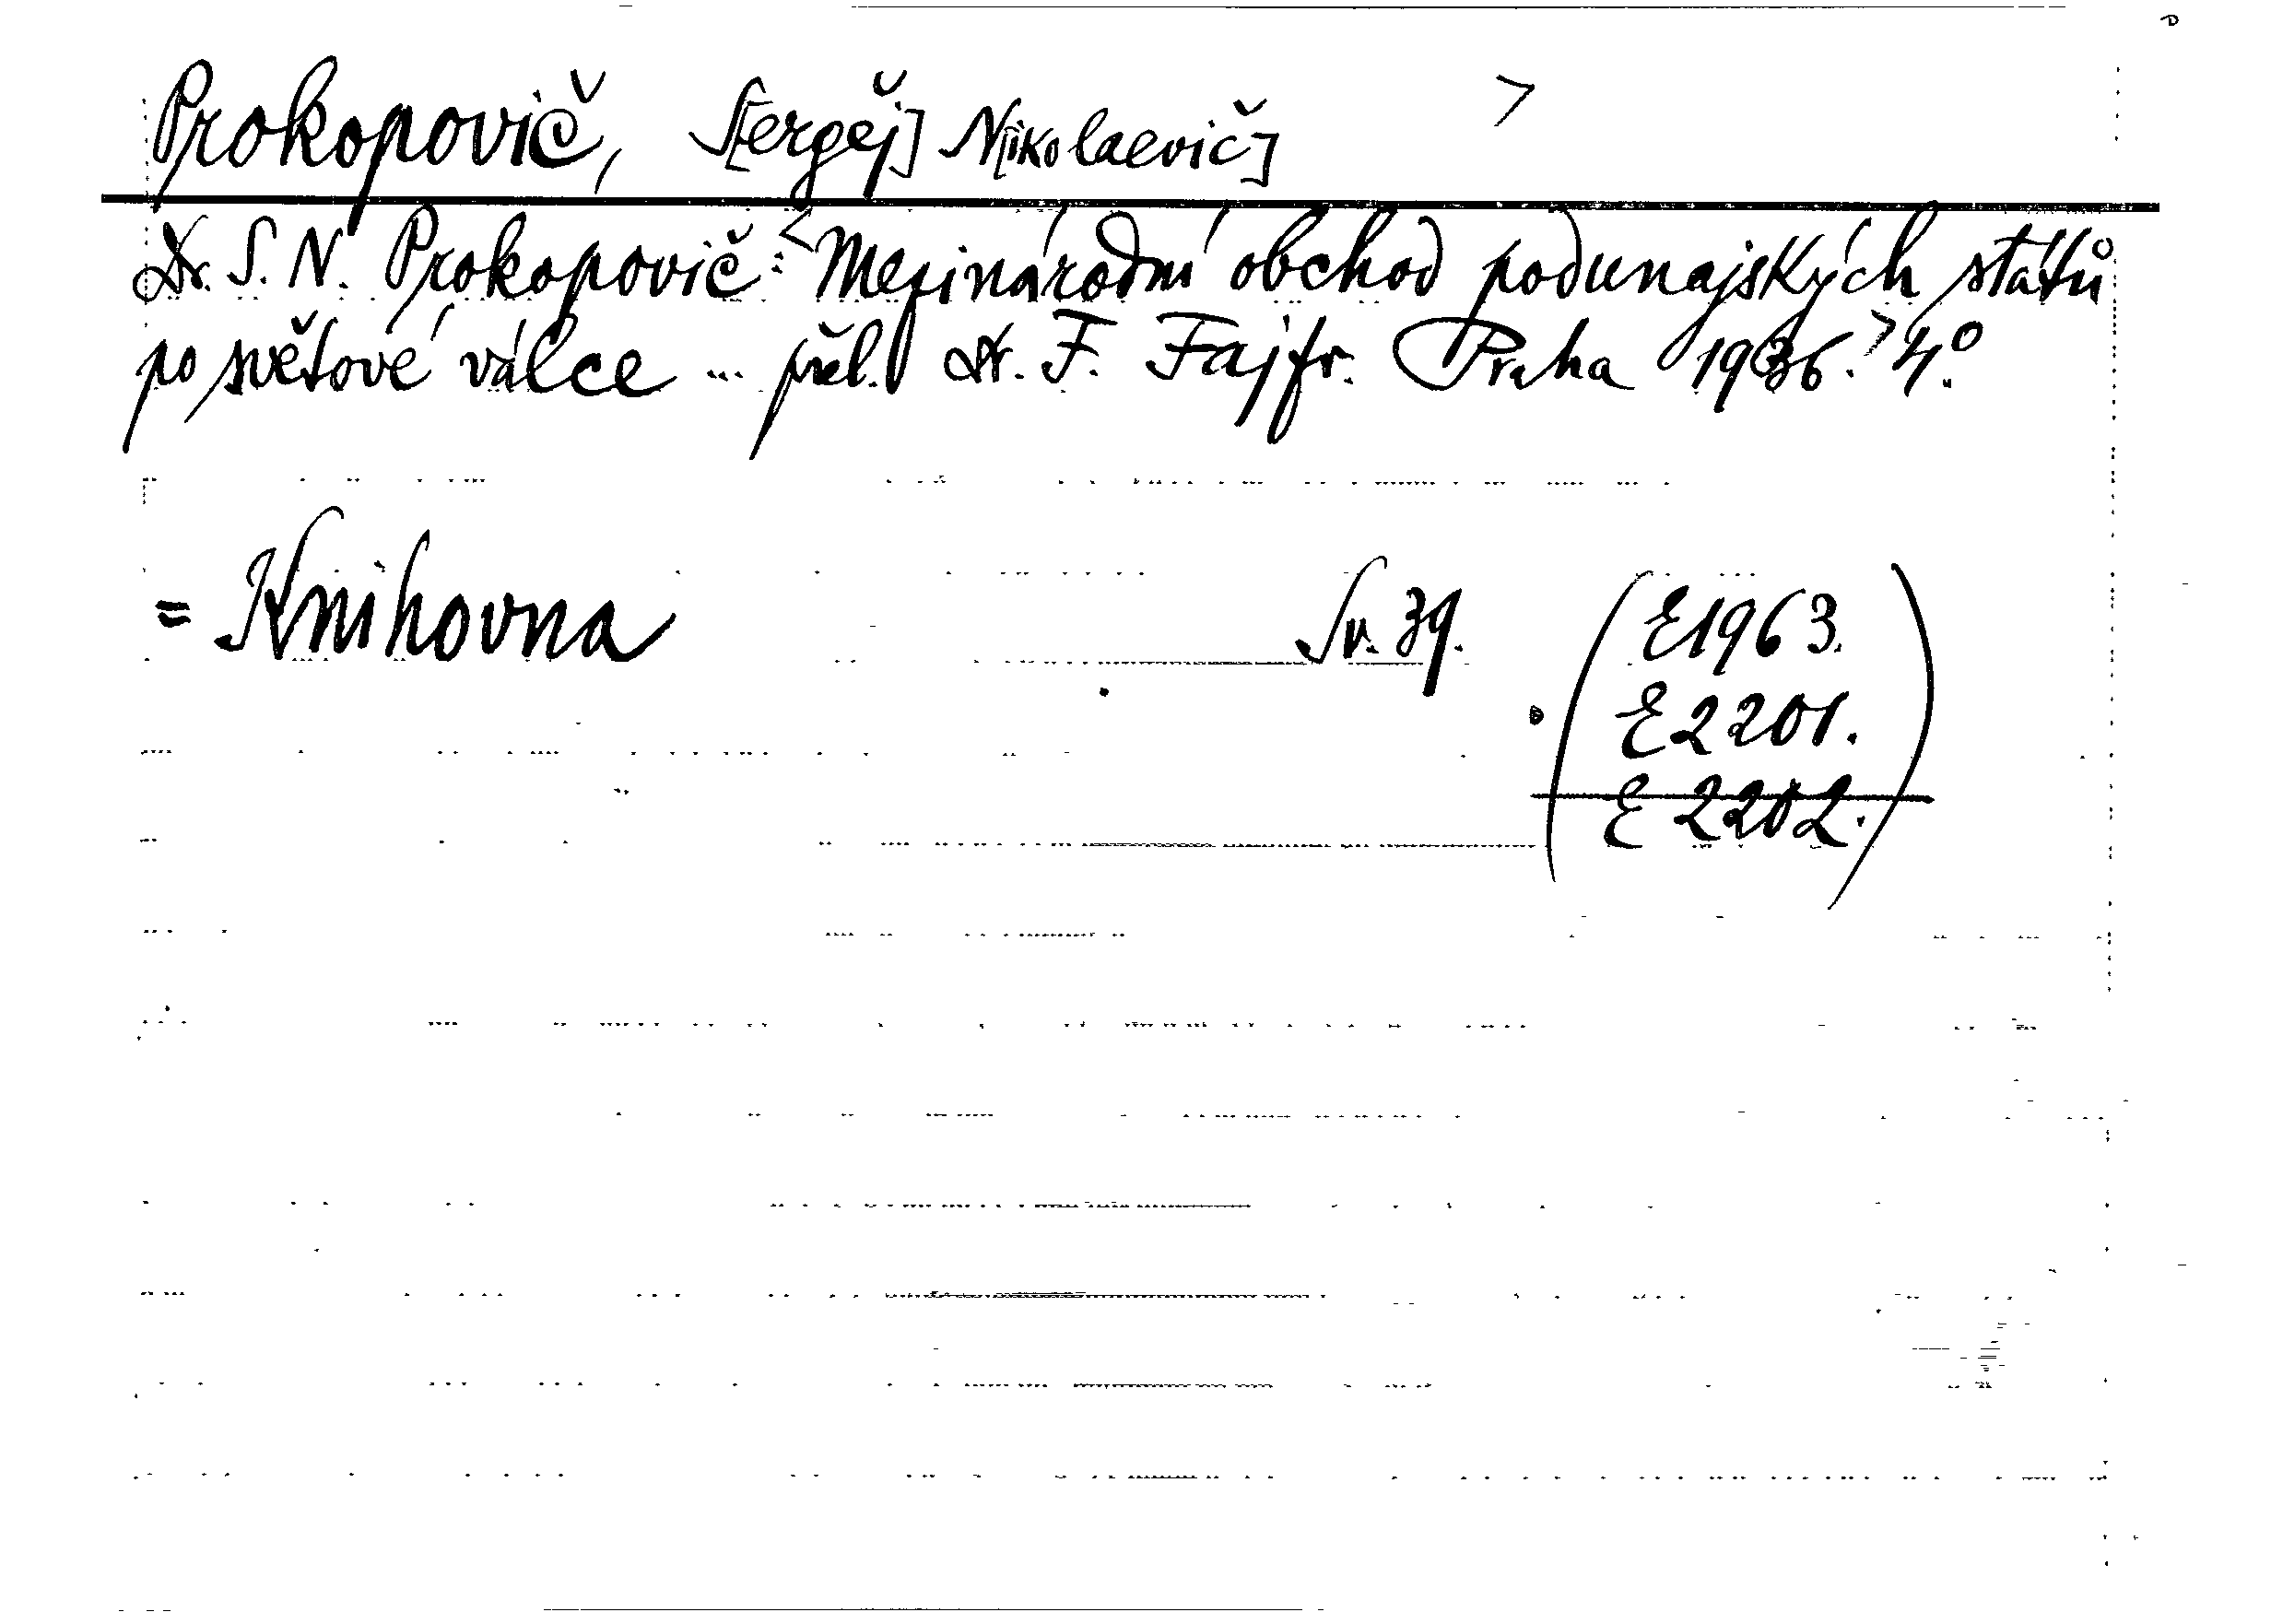 Prokopovič, S[ergěj] N[ikolaevič] >
Dr. S. N. Prokopovič: <Mezinárodní obchod podunajských států
po světové válce ... přel. Dr. F. Fajfr. Praha 1936.> 4.°
= Knihovna Sv. 39. (E1963.
E2201.
E2202.)